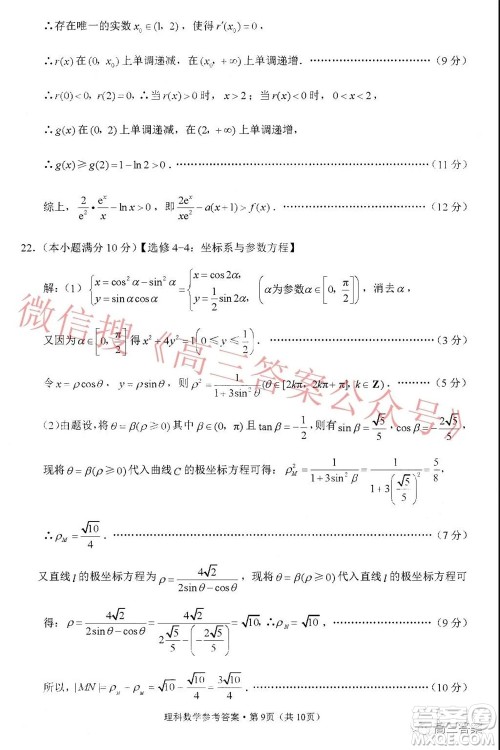 ∴存在唯一的实数 x₀∈(1, 2)，使得 r′(x₀)=0.
∴r(x) 在(0, x₀)上单调递减，在(x₀, +∞)上单调递增. ……(9 分)
∴r(0)<0, r(2)=0, ∴当 r(x)>0 时，x>2；当 r(x)<0 时，0<x<2.
∴g(x) 在(0, 2)上单调递减，在(2, +∞)上单调递增，
∴g(x)≥g(2)=1−ln2>0. ……(11 分)
综上，2/e²•eˣ/x−lnx>0，即 2eˣ/(xe²)−a(x+1)>f(x). ……(12 分)
22.（本小题满分 10 分）【选修 4-4：坐标系与参数方程】
解：(1) {x=cos²α−sin²α, y=sinαcosα ⇒ {x=cos2α, y=1/2 sin2α (α为参数α∈[0, π/2])，消去α，
又因为α∈[0, π/2] 得 x²+4y²=1(0≤y≤1/2) ……(3 分)
令 x=ρcosθ，y=ρsinθ，则 ρ²=1/(1+3sin²θ)(θ∈[2kπ, 2kπ+π], k∈Z). ……(5 分)
(2) 由题设，将θ=β(ρ≥0)代入，β∈(0, π)且 tanβ=−1/2，则有 sinβ=√5/5，cosβ=−2√5/5，
现将θ=β(ρ≥0)代入曲线 C 的极坐标方程可得：ρ_M²=1/(1+3sin²β)=1/(1+3(√5/5)²)=5/8，
∴ρ_M=√10/4. ……(7 分)
又直线 l 的极坐标方程为ρ=4√2/(2sinθ−cosθ)，现将θ=β(ρ≥0)代入直线 l 的极坐标方程可
得：ρ=4√2/(2sinθ−cosθ)=4√2/(2√5/5−(−2√5/5))=√10，∴ρ_N=√10. ……(9 分)
所以，|MN|=|ρ_M−ρ_N|=|√10/4−√10|=3√10/4. ……(10 分)
理科数学参考答案•第 9页（共 10页）
微信搜《高三答案公众号》
高三答案